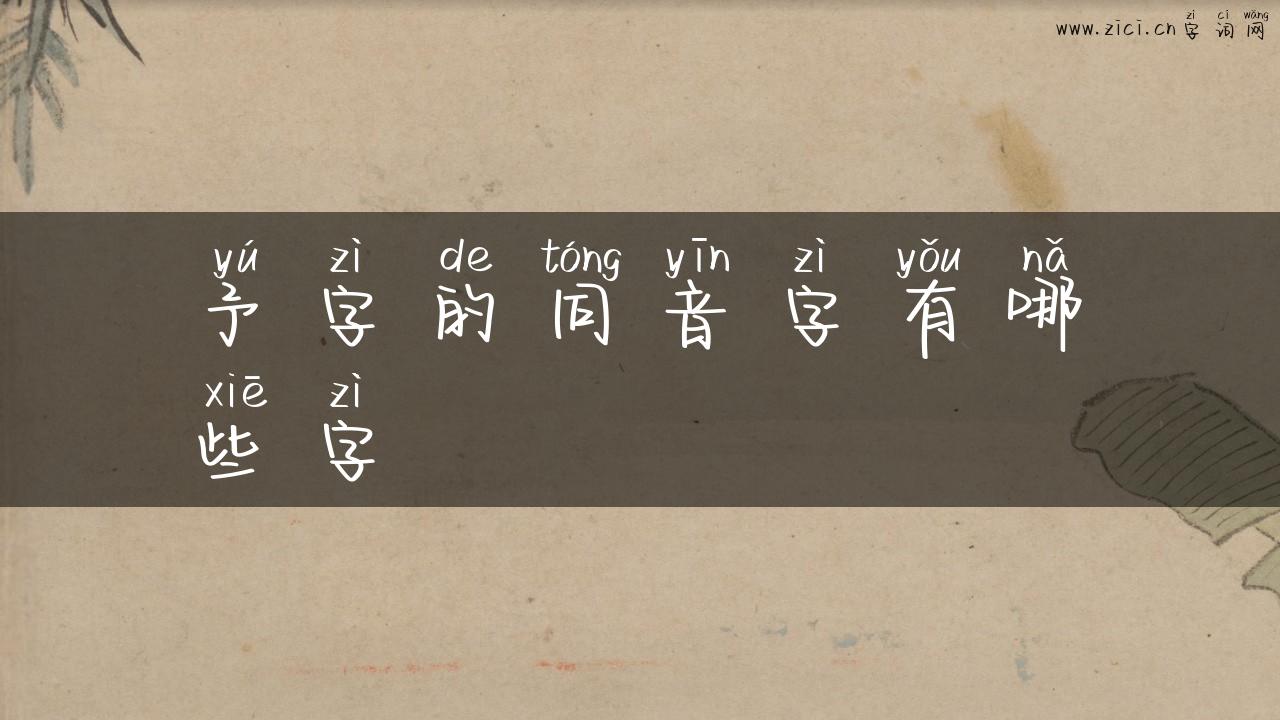 zì cí wǎng
www.zici.cn 字 词 网
yú zì de tóng yīn zì yǒu nǎ
予 字 的 同 音 字 有 哪
xiē zì
些 字